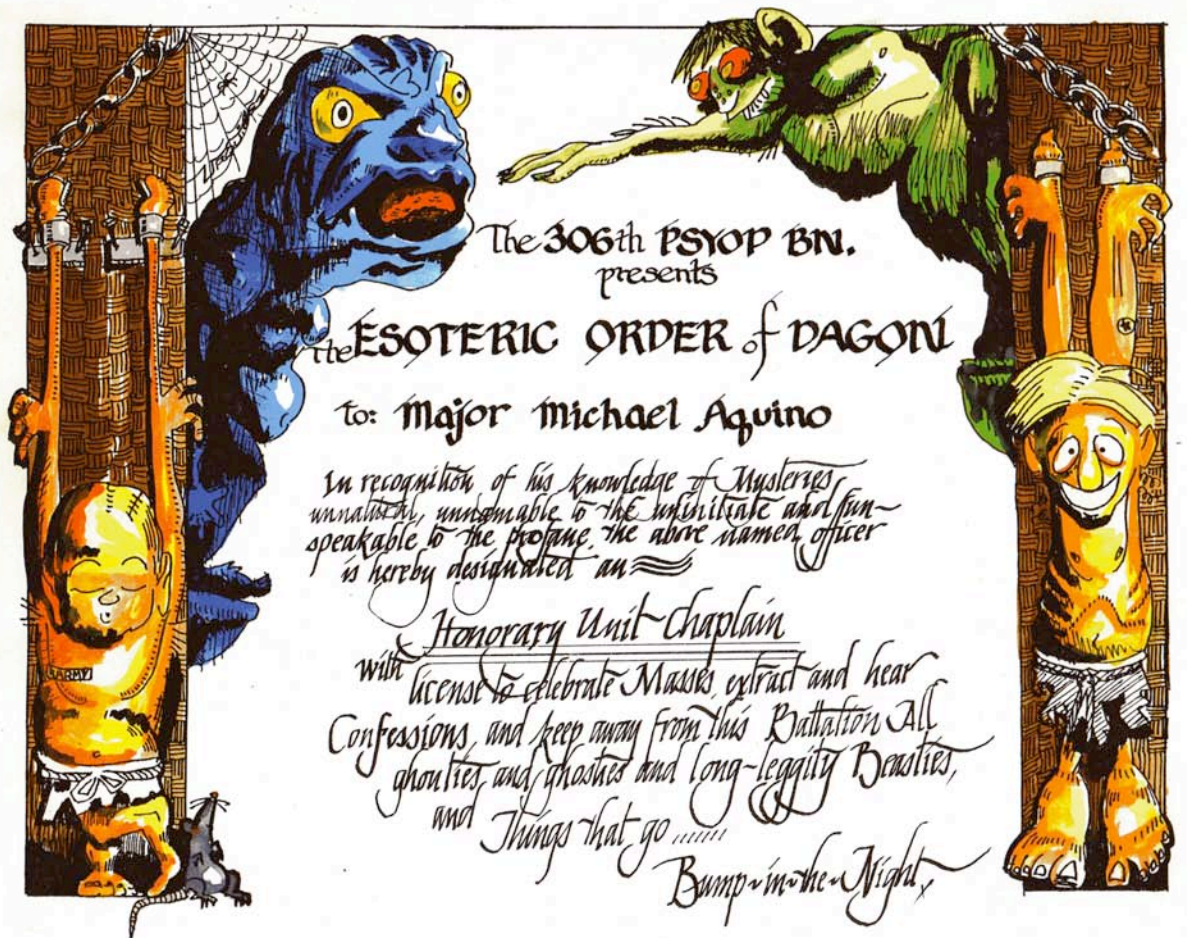 The 306th PSYOP BN.
presents
the ESOTERIC ORDER of DAGON
to: Major Michael Aquino
In recognition of his knowledge of Mysteries
unnatural, unnamable to the uninitiate and un-
speakable to the profane, the above named officer
is hereby designated an
Honorary Unit Chaplain
with license to celebrate Masses, extract and hear
Confessions, and keep away from this Battalion All
ghoulies, and ghosties and long-leggity Beasties,
and Things that go .......
Bump-in-the-Night
ARMY